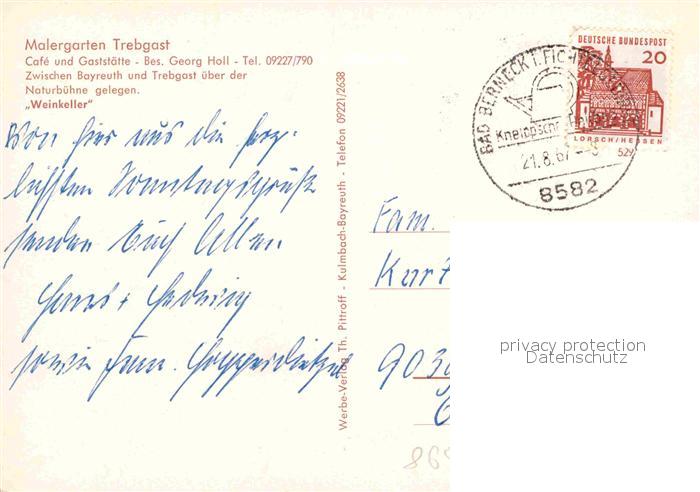 Malergarten Trebgast
Café und Gaststätte - Bes. Georg Holl - Tel. 09227/790
Zwischen Bayreuth und Trebgast über der
Naturbühne gelegen.
„Weinkeller"
Von hier aus die herz-
lichsten Sonntagsgrüße
senden Euch Allen
Hans + Hedwig
sowie Fam.
Werbe-Verlag Th. Pittroff - Kulmbach-Bayreuth - Telefon 09221/2638
DEUTSCHE BUNDESPOST
20
LORSCH/HESSEN
529
BAD BERNECK I. FICHTELGEBIRGE
21.8.67
8582
Fam.
Kurt
privacy protection
Datenschutz